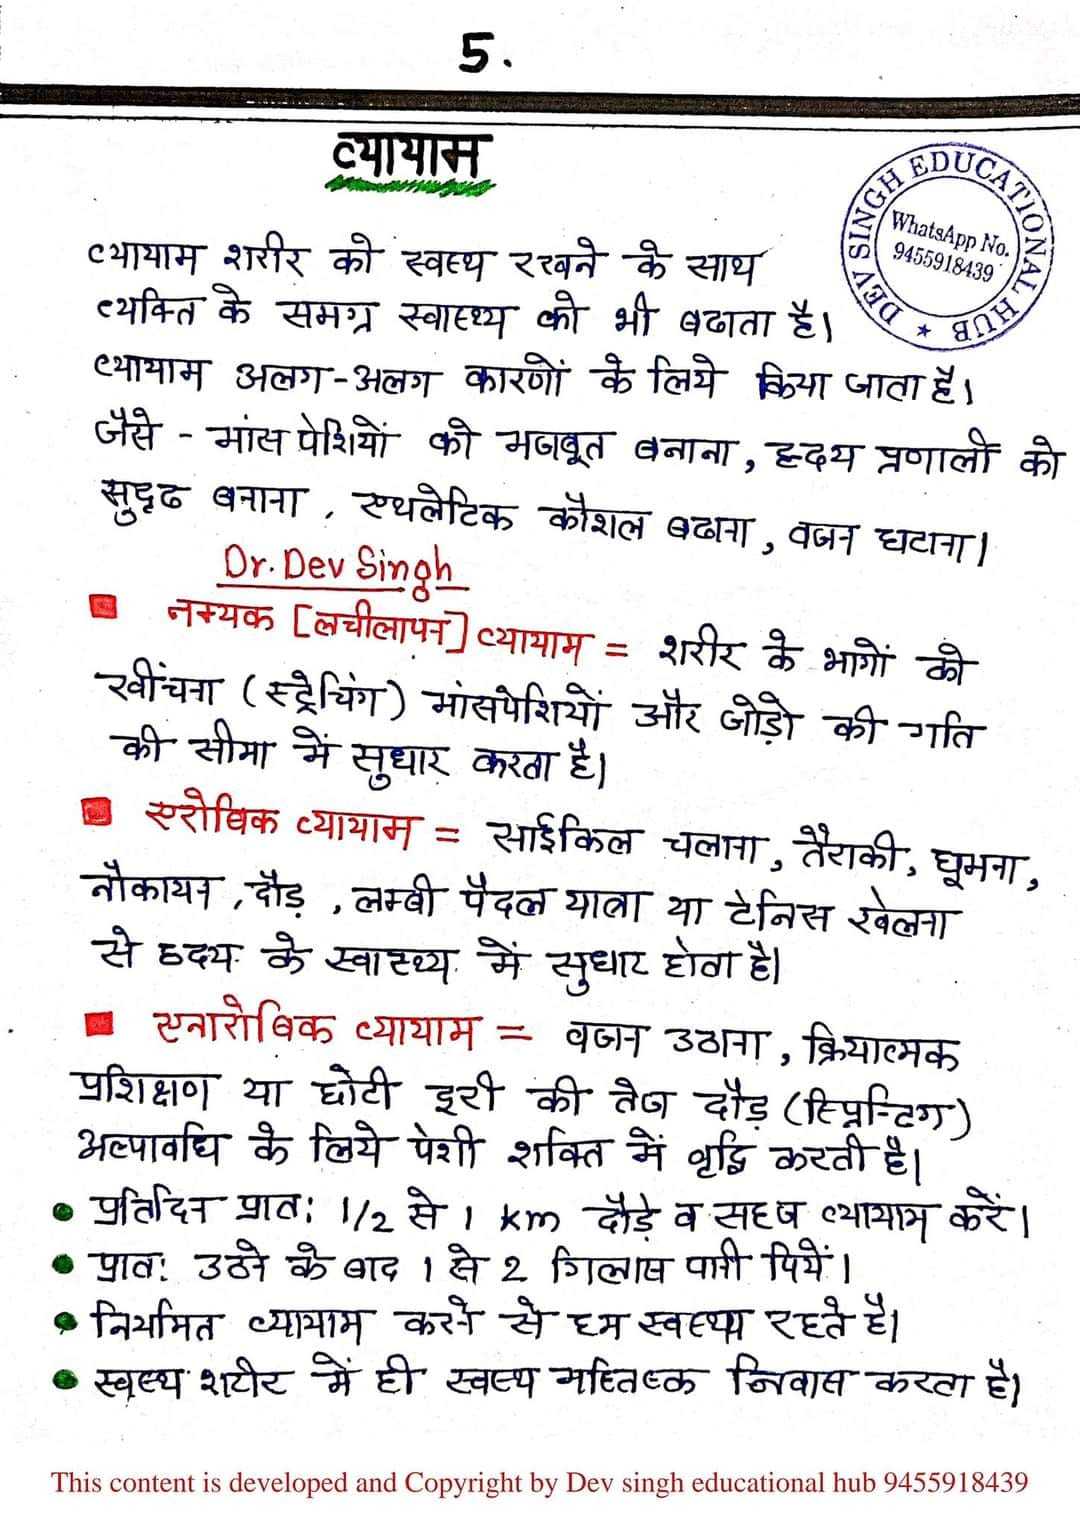 5.
व्यायाम
DEV SINGH EDUCATIONAL HUB ★
WhatsApp No.
9455918439
व्यायाम शरीर को स्वस्थ रखने के साथ
व्यक्ति के समग्र स्वास्थ्य को भी बढाता है।
व्यायाम अलग-अलग कारणों के लिये किया जाता है।
जैसे - मांसपेशियों को मजबूत बनाना, हृदय प्रणाली को
सुदृढ बनाना, एथलेटिक कौशल बढाना, वजन घटाना।
Dr. Dev Singh
नम्यक [लचीलापन] व्यायाम = शरीर के भागों को
खींचना (स्ट्रेचिंग) मांसपेशियों और जोड़ो की गति
की सीमा में सुधार करता है।
एरोबिक व्यायाम = साईकिल चलाना, तैराकी, घूमना,
नौकायन, दौड़, लम्बी पैदल यात्रा या टेनिस खेलना
से हृदय के स्वास्थ्य में सुधार होता है।
एनारोबिक व्यायाम = वजन उठाना, क्रियात्मक
प्रशिक्षण या छोटी दूरी की तेज दौड़ (स्प्रिन्टिग)
अल्पावधि के लिये पेशी शक्ति में वृद्धि करती है।
प्रतिदिन प्रात: 1/2 से 1 km दौड़े व सहज व्यायाम करें।
प्रात: उठने के बाद 1 से 2 गिलास पानी पियें।
नियमित व्यायाम करने से हम स्वस्थ रहते है।
स्वस्थ शरीर में ही स्वस्थ मस्तिष्क निवास करता है।
This content is developed and Copyright by Dev singh educational hub 9455918439